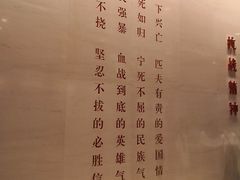 抗战精神
下兴亡 匹夫有责的爱国情
死如归 宁死不屈的民族气
强暴 血战到底的英雄气
不挠 坚忍不拔的必胜信